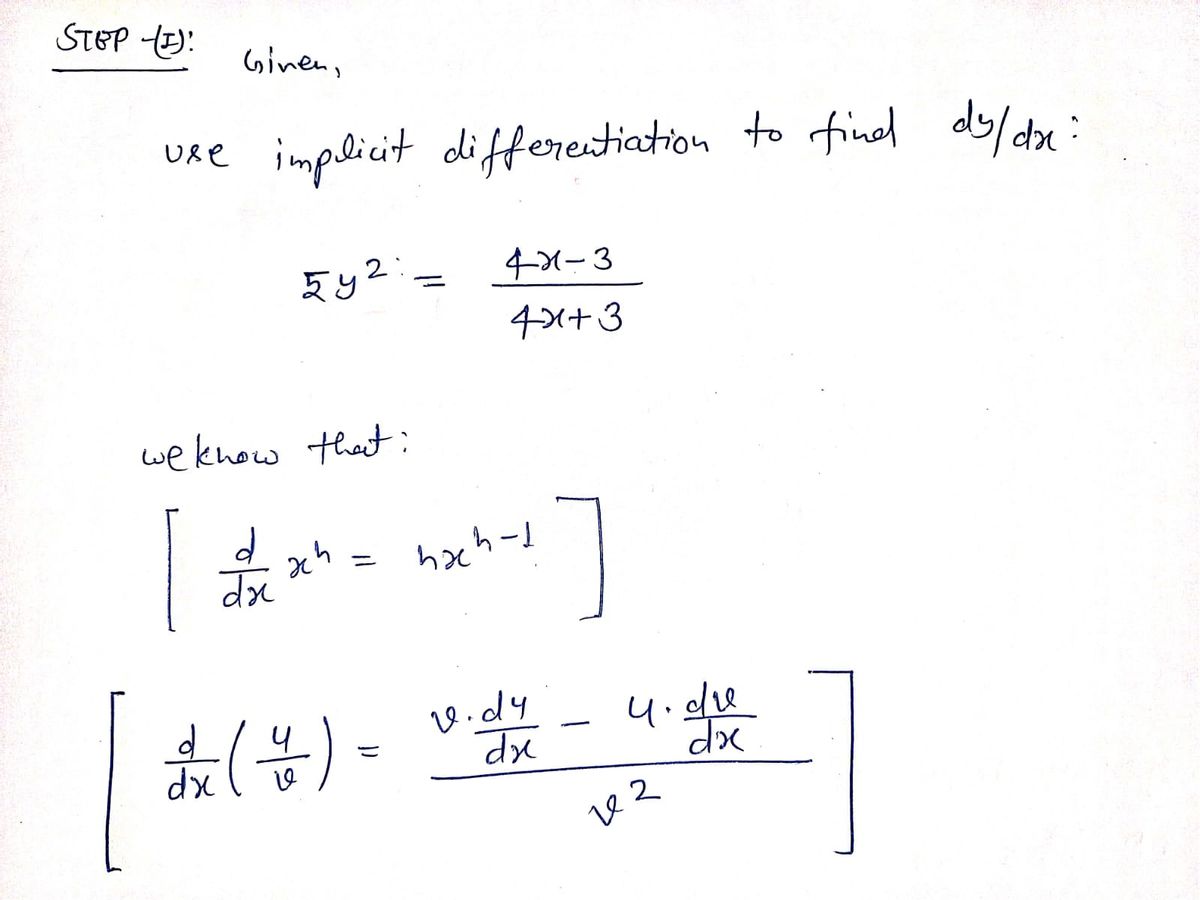 STEP -(I):
Given,
use implicit differentiation to find dy/dx:
5y² = (4x-3)/(4x+3)
we know that:
[ d/dx xⁿ = nxⁿ⁻¹ ]
[ d/dx (u/v) = (v.du/dx - u.dv/dx)/v² ]